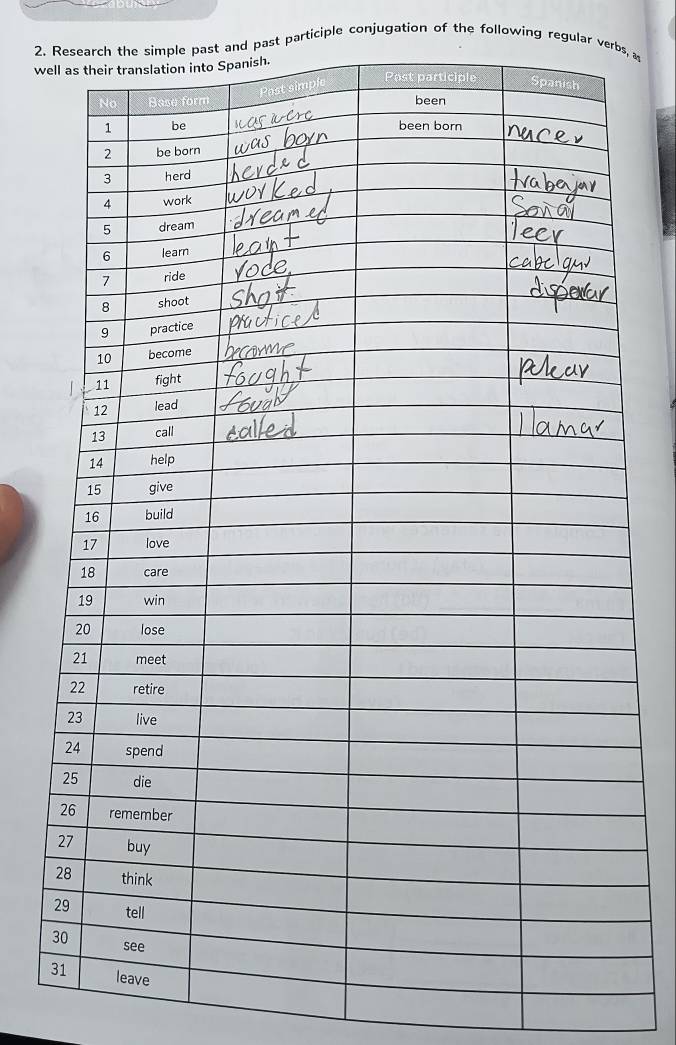 Vocabulary
2. Research the simple past and past participle conjugation of the following regular verbs, as
well as their translation into Spanish.
No Base form Past simple Past participle Spanish
1 be was were been
2 be born was born been born nacer
3 herd herded
4 work worked trabajar
5 dream dreamed Soñar
6 learn learnt leer
7 ride rode cabalgar
8 shoot shot disparar
9 practice practiced
10 become become
11 fight fought pelear
12 lead fough
13 call called llamar
14 help
15 give
16 build
17 love
18 care
19 win
20 lose
21 meet
22 retire
23 live
24 spend
25 die
26 remember
27 buy
28 think
29 tell
30 see
31 leave